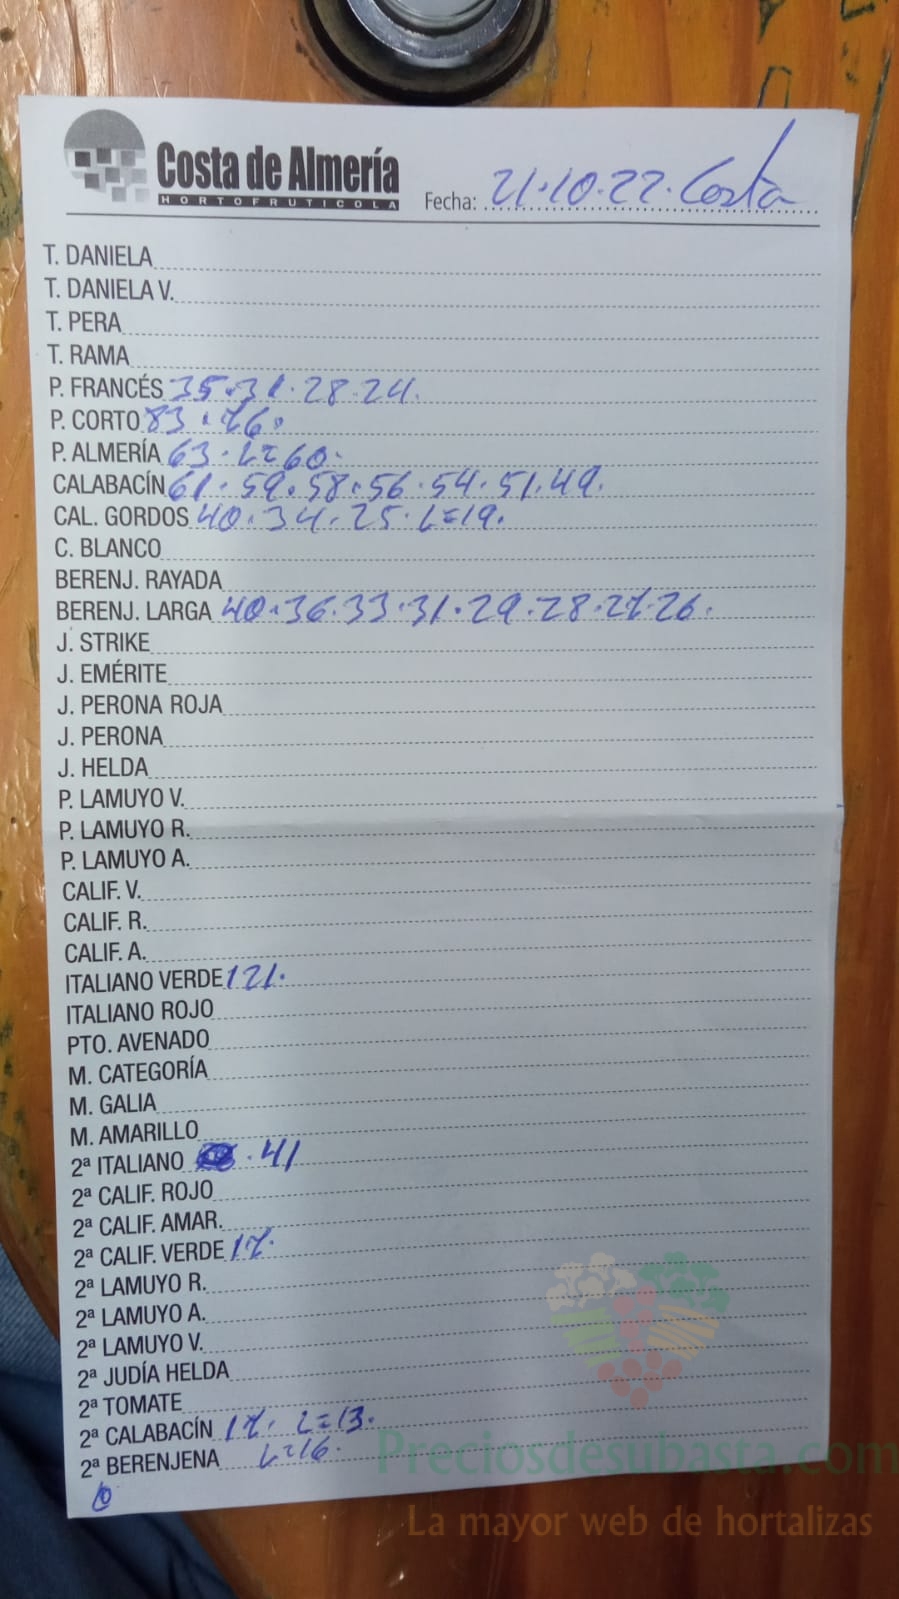 Costa de Almería
HORTOFRUTICOLA
Fecha: 21.10.22. Costa
T. DANIELA
T. DANIELA V.
T. PERA
T. RAMA
P. FRANCÉS 35.31.28.24.
P. CORTO 83.76.
P. ALMERÍA 63.L=60.
CALABACÍN 61.59.58.56.54.51.49.
CAL. GORDOS 40.34.25.L=19.
C. BLANCO
BERENJ. RAYADA
BERENJ. LARGA 40.36.33.31.29.28.27.26.
J. STRIKE
J. EMÉRITE
J. PERONA ROJA
J. PERONA
J. HELDA
P. LAMUYO V.
P. LAMUYO R.
P. LAMUYO A.
CALIF. V.
CALIF. R.
CALIF. A.
ITALIANO VERDE 121.
ITALIANO ROJO
PTO. AVENADO
M. CATEGORÍA
M. GALIA
M. AMARILLO
2ª ITALIANO . 41
2ª CALIF. ROJO
2ª CALIF. AMAR.
2ª CALIF. VERDE 17.
2ª LAMUYO R.
2ª LAMUYO A.
2ª LAMUYO V.
2ª JUDÍA HELDA
2ª TOMATE
2ª CALABACÍN 17. L=13.
2ª BERENJENA L=16.
Preciosdesubasta.com
La mayor web de hortalizas